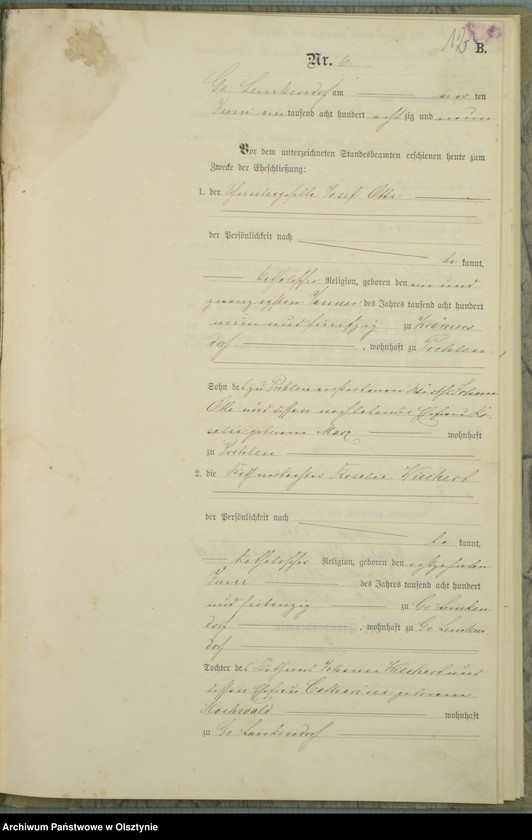 12 B.
Nr. 6.
Gr. Lemkendorf am ten
Juni eintausend acht hundert achtzig und neun
Vor dem unterzeichneten Standesbeamten erschienen heute zum
Zwecke der Eheschließung:
1. der Josef Otto
der Persönlichkeit nach
be kannt,
katholischer Religion, geboren den und
zwanzigsten Januar des Jahres tausend acht hundert
neun und fünfzig zu Krämers
dorf, wohnhaft zu Prohlen
Sohn des zu Prohlen verstorbenen Wirths Johann
Otto und dessen nachlebender Ehefrau Ro
salie geborene wohnhaft
zu Prohlen
2. die Rosalie Wiechert
der Persönlichkeit nach
be kannt,
katholischer Religion, geboren den achtzehnten
des Jahres tausend acht hundert
und siebenzig zu Gr. Lemken
dorf, wohnhaft zu Gr. Lemken
dorf
Tochter des Johann Wiechert und
dessen Ehefrau Catharina geborene
Hochwald wohnhaft
zu Gr. Lemkendorf
Archiwum Państwowe w Olsztynie